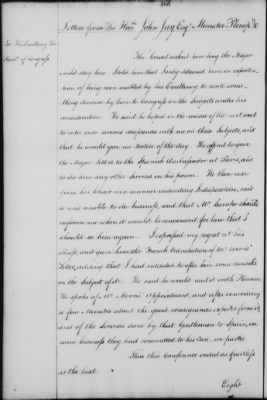 Letters from The Honble John Jay Esqr Minister Plenipy &c
To His Excellency The
Presidt of Congress
The Count asked how long the Major
would stay here. I told him that I only detained him in expecta-
tion of being soon enabled by his Excellency to write some-
thing decisive by him to Congress on the Subjects under his
consideration. He said he hoped in the course of the next week
to enter into serious conferences with me on those Subjects, and
that he would give me notice of the day. He offered to give
the Major Letters to the Spanish Ambassador at Paris, and
to do him any other services in his power. He then rose
from his Chair in a manner indicating Indisposition, said
he was unable to do business, and that Mr
inform me when it would be convenient for him that I
should see him again. I expressed my regret at his
illness, and gave him the French translation of Mr
Letter, noticing that I had intended to offer him some remarks
on the Subject of it. He said he would read it with Pleasure.
He spoke of Mr Morris' appointment, and after conversing
a few Minutes about the good consequences expected from it,
and of the Services done by that Gentleman to Spain, on
some business they had committed to his Care, we parted.
Thus this Conference ended as fruitless
as the last.
Eight